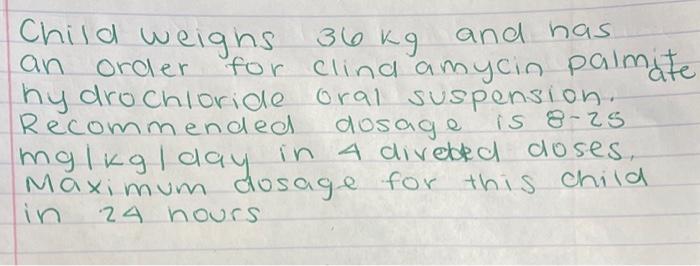 Child weighs 36 kg and has
an order for clindamycin palmitate
hydrochloride oral suspension.
Recommended dosage is 8-25
mg/kg/day in 4 diveded doses,
Maximum dosage for this child
in 24 hours